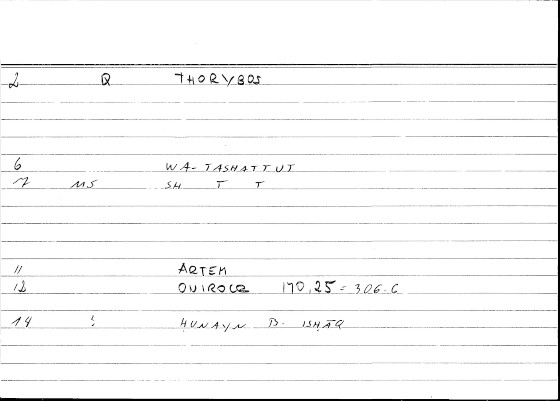 2 Q THORYBOS
6 WA-TASHATTUT
7 MS SH T T
11 ARTEM
12 ONIROCR 170,25 = 306.6
14 : HUNAYN B. ISHĀQ